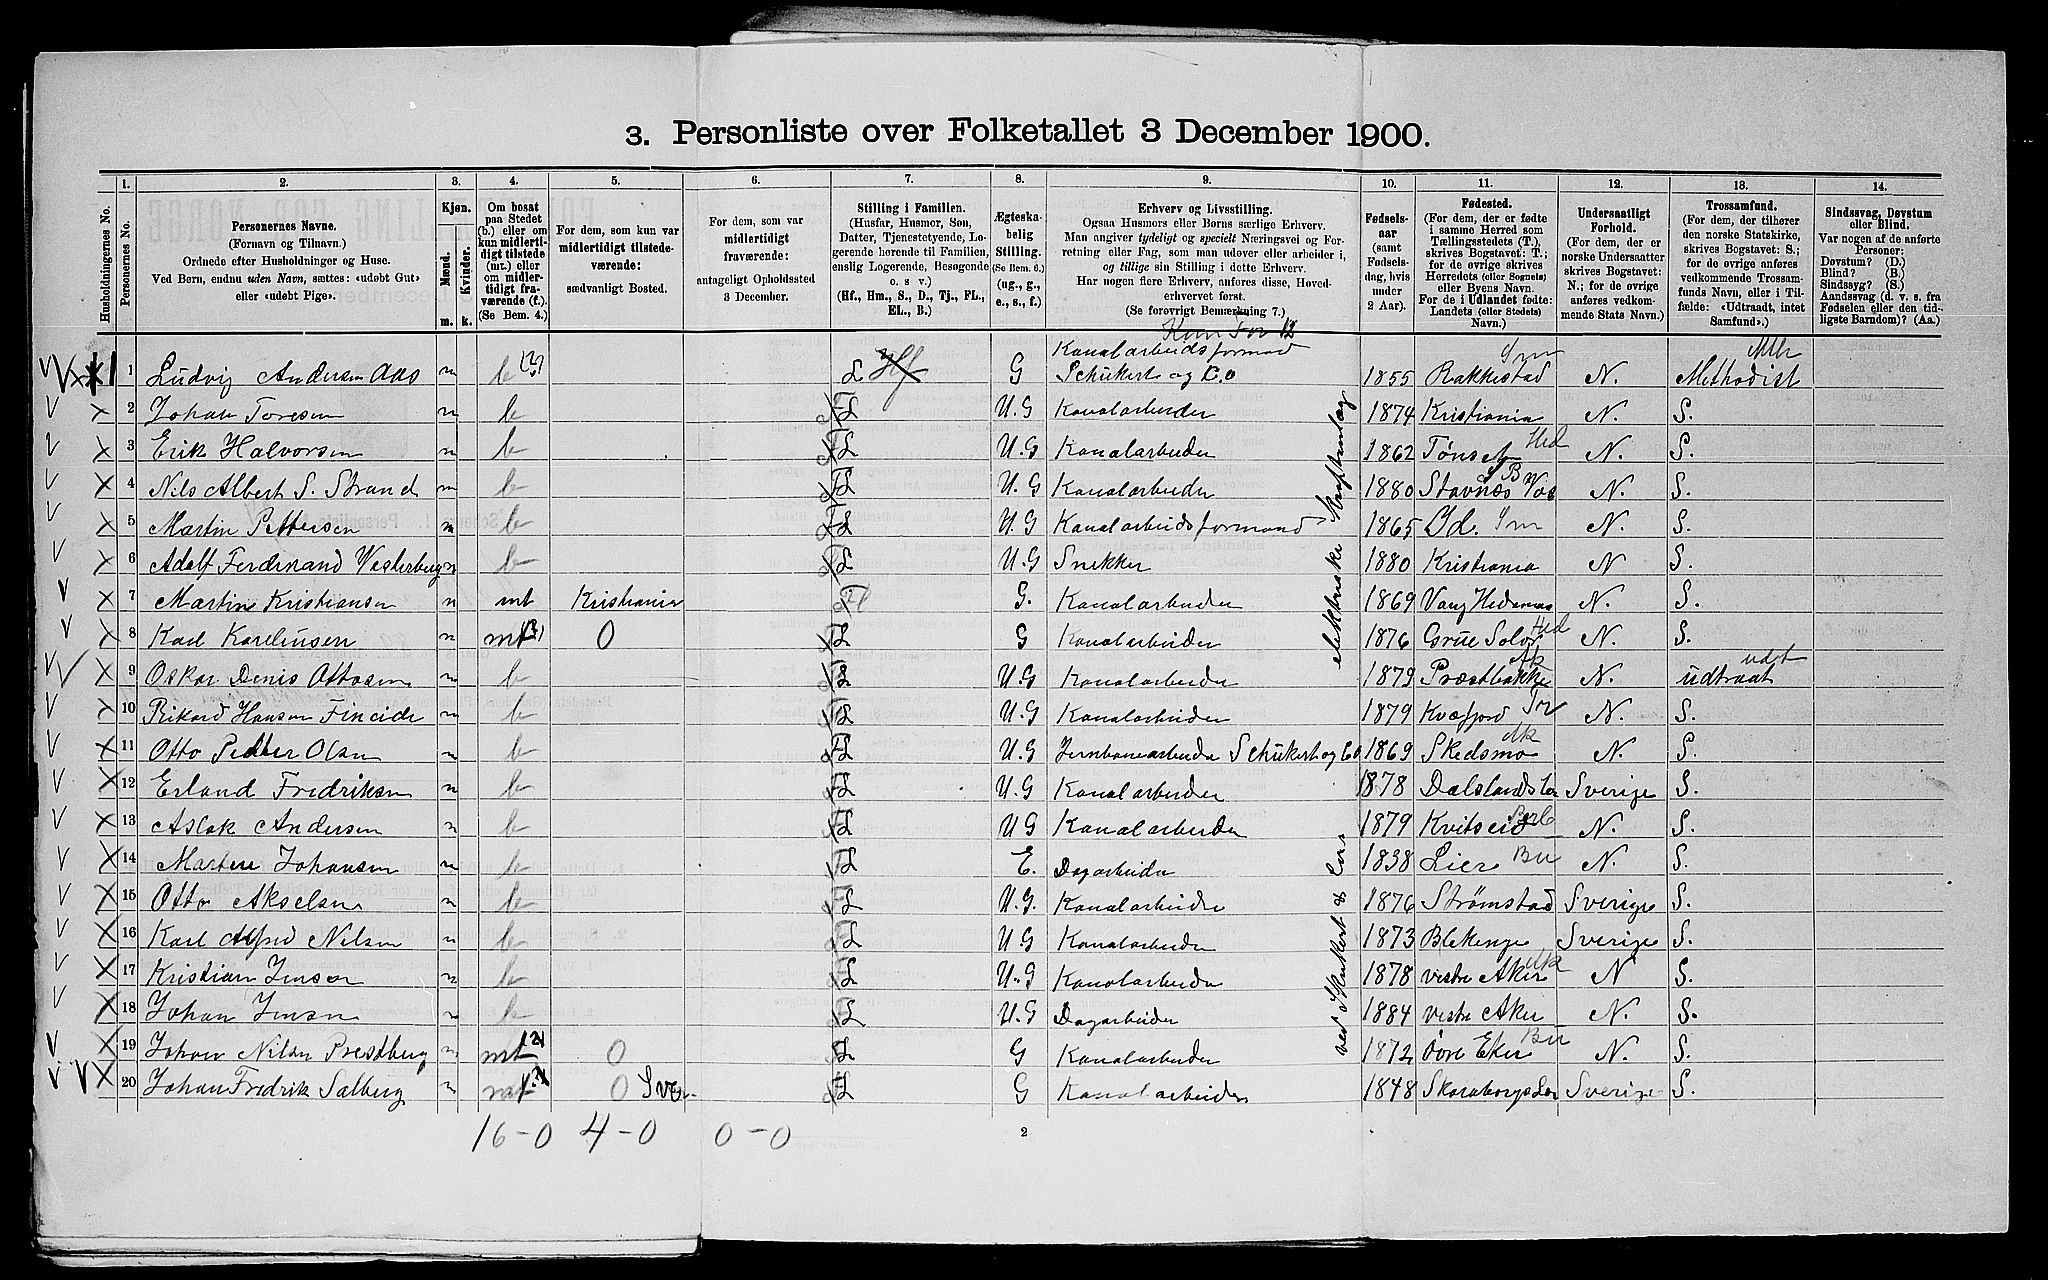 3. Personliste over Folketallet 3 December 1900.
Husholdningernes No.
1. Personernes No.
2. Personernes Navne. (Fornavn og Tilnavn.) Ordnede efter Husholdninger og Huse. Ved Børn, endnu uden Navn, sættes: «udøbt Gut» eller «udøbt Pige».
3. Kjøn. Mænd. Kvinder. m. k.
4. Om bosat paa Stedet (b.) eller om kun midlertidigt tilstede (mt.) eller om midlertidigt fraværende (f.). (Se Bem. 4.)
5. For dem, som kun var midlertidigt tilstedeværende: sædvanligt Bosted.
6. For dem, som var midlertidigt fraværende: antageligt Opholdssted 3 December.
7. Stilling i Familien. (Husfar, Husmor, Søn, Datter, Tjenestetyende, Logerende hørende til Familien, enslig Logerende, Besøgende o. s v.) (Hf., Hm., S., D., Tj., FL., EL., B.)
8. Ægteskabelig Stilling. (Se Bem. 6.) (ug., g., e., s., f.)
9. Erhverv og Livsstilling. Ogsaa Husmors eller Børns særlige Erhverv. Man angiver tydeligt og specielt Næringsvei og Forretning eller Fag, som man udøver eller arbeider i, og tillige sin Stilling i dette Erhverv. Har nogen flere Erhverv, anføres disse, Hovederhvervet først. (Se forøvrigt Bemærkning 7.)
10. Fødselsaar (samt Fødselsdag, hvis under 2 Aar).
11. Fødested. (For dem, der er fødte i samme Herred som Tællingsstedets (T.), skrives Bogstavet: T.; for de øvrige skrives Herredets (eller Sognets) eller Byens Navn. For de i Udlandet fødte: Landets (eller Stedets) Navn.)
12. Undersaatligt Forhold. (For dem, der er norske Undersaatter skrives Bogstavet: N.; for de øvrige anføres vedkommende Stats Navn.)
13. Trossamfund. (For dem, der tilhører den norske Statskirke, skrives Bogstavet: S.; for de øvrige anføres vedkommende Trossamfunds Navn, eller i Tilfælde: «Udtraadt, intet Samfund».)
14. Sindssvag, Døvstum eller Blind. Var nogen af de anførte Personer: Døvstum? (D.) Blind? (B.) Sindssyg? (S.) Aandssvag (d. v. s. fra Fødselen eller den tidligste Barndom)? (Aa.)
1 Ludvig Andersen Aas m b L Hf G Kanalarbeidsformand Schükert og Co 1855 Rakkestad Sm N. Methodist Mth
2 Johan Toresen m b L U.G Kanalarbeider 1874 Kristiania N. S.
3 Erik Halvorsen m b L U.G Kanalarbeider 1862 Tønset Hed N. S.
4 Nils Albert S. Strand m b L U.G Kanalarbeider 1880 Stavnæs Vos N. S.
5 Martin Pettersen m b L U.G Kanalarbeidsformand 1865 Id. Sm N. S.
6 Adolf Ferdinand Westerberg m b L U.G Snekker 1880 Kristiania N S.
7 Martin Kristiansen m mt Kristiania G. Kanalarbeider 1869 Vang Hedemar N. S.
8 Karl Karelinsen m mt 0 L G Kanalarbeider 1876 Grue Solør Hed N. S.
9 Oskar Denis Ottosen m b L U.G Kanalarbeider 1879 Præstbakke Ak N. udtraat udt
10 Rikard Hansen Fineide m b L U.G Kanalarbeider 1879 Kvæfjord Tr N. S.
11 Otto Petter Olsen m b L U.G Jernbanearbeider Schükert og Co 1869 Skedsmo Ak N S.
12 Erland Fredriksen m b L U.G Kanalarbeider 1878 Dalslands Len Sverige S.
13 Aslak Andersen m b L UG Kanalarbeider 1879 Kvitseid N. S.
14 Martin Johansen m b L E. Dagarbeider 1838 Lier Bu N. S.
15 Otto Akselsen m b L U.G. Kanalarbeider 1876 Strømstad Sverige S.
16 Karl Alfred Nilsen m b L U G Kanalarbeider 1873 Blekenge Sverige S.
17 Kristian Jensen m b L U.G Kanalarbeider 1878 vestre Aker Ak N S.
18 Johan Jensen m b L U.G Dagarbeider 1884 vestre Aker N. S.
19 Johan Nilsen Prestberg m mt 0 L G Kanalarbeider 1872 Øvre Eker Bu N. S.
20 Johan Fredrik Salberg m mt 0 Sve. L G Kanalarbeider 1848 Skaraborgs Len Sverige S.
16-0 4-0 0-0
2